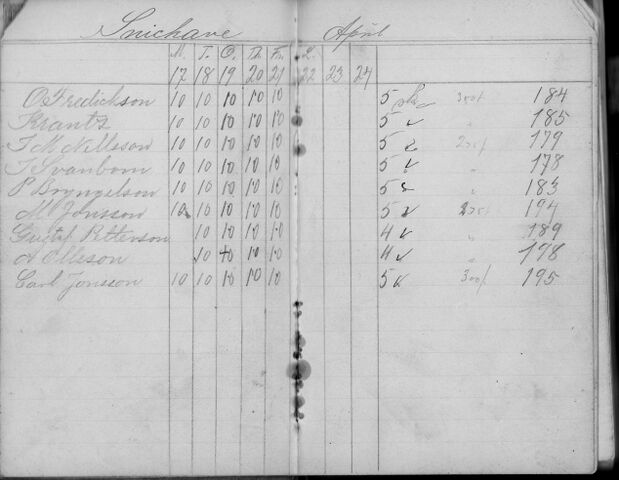 Snickare April
M. T. O. Th. Fr. L.
17 18 19 20 21 22 23 24
O Fredickson 10 10 10 10 10 5 184
Krantz 10 10 10 10 10 5 185
F M Nillsson 10 10 10 10 10 5 179
J Svanbom 10 10 10 10 10 5 178
P Bryngelson 10 10 10 10 10 5 183
M Jonsson 10 10 10 10 10 5 194
Gustaf Petterson 10 10 10 10 4 189
A Olleson 10 10 10 10 4 178
Carl Jonsson 10 10 10 10 10 5 195